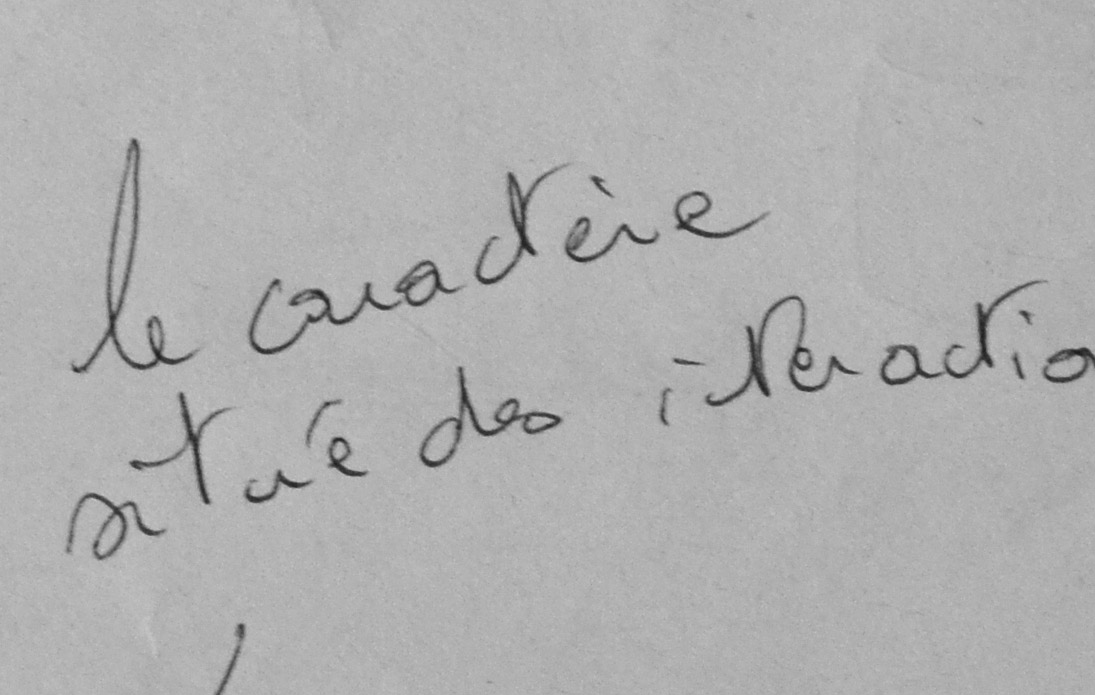 le caractère
situé des interactio